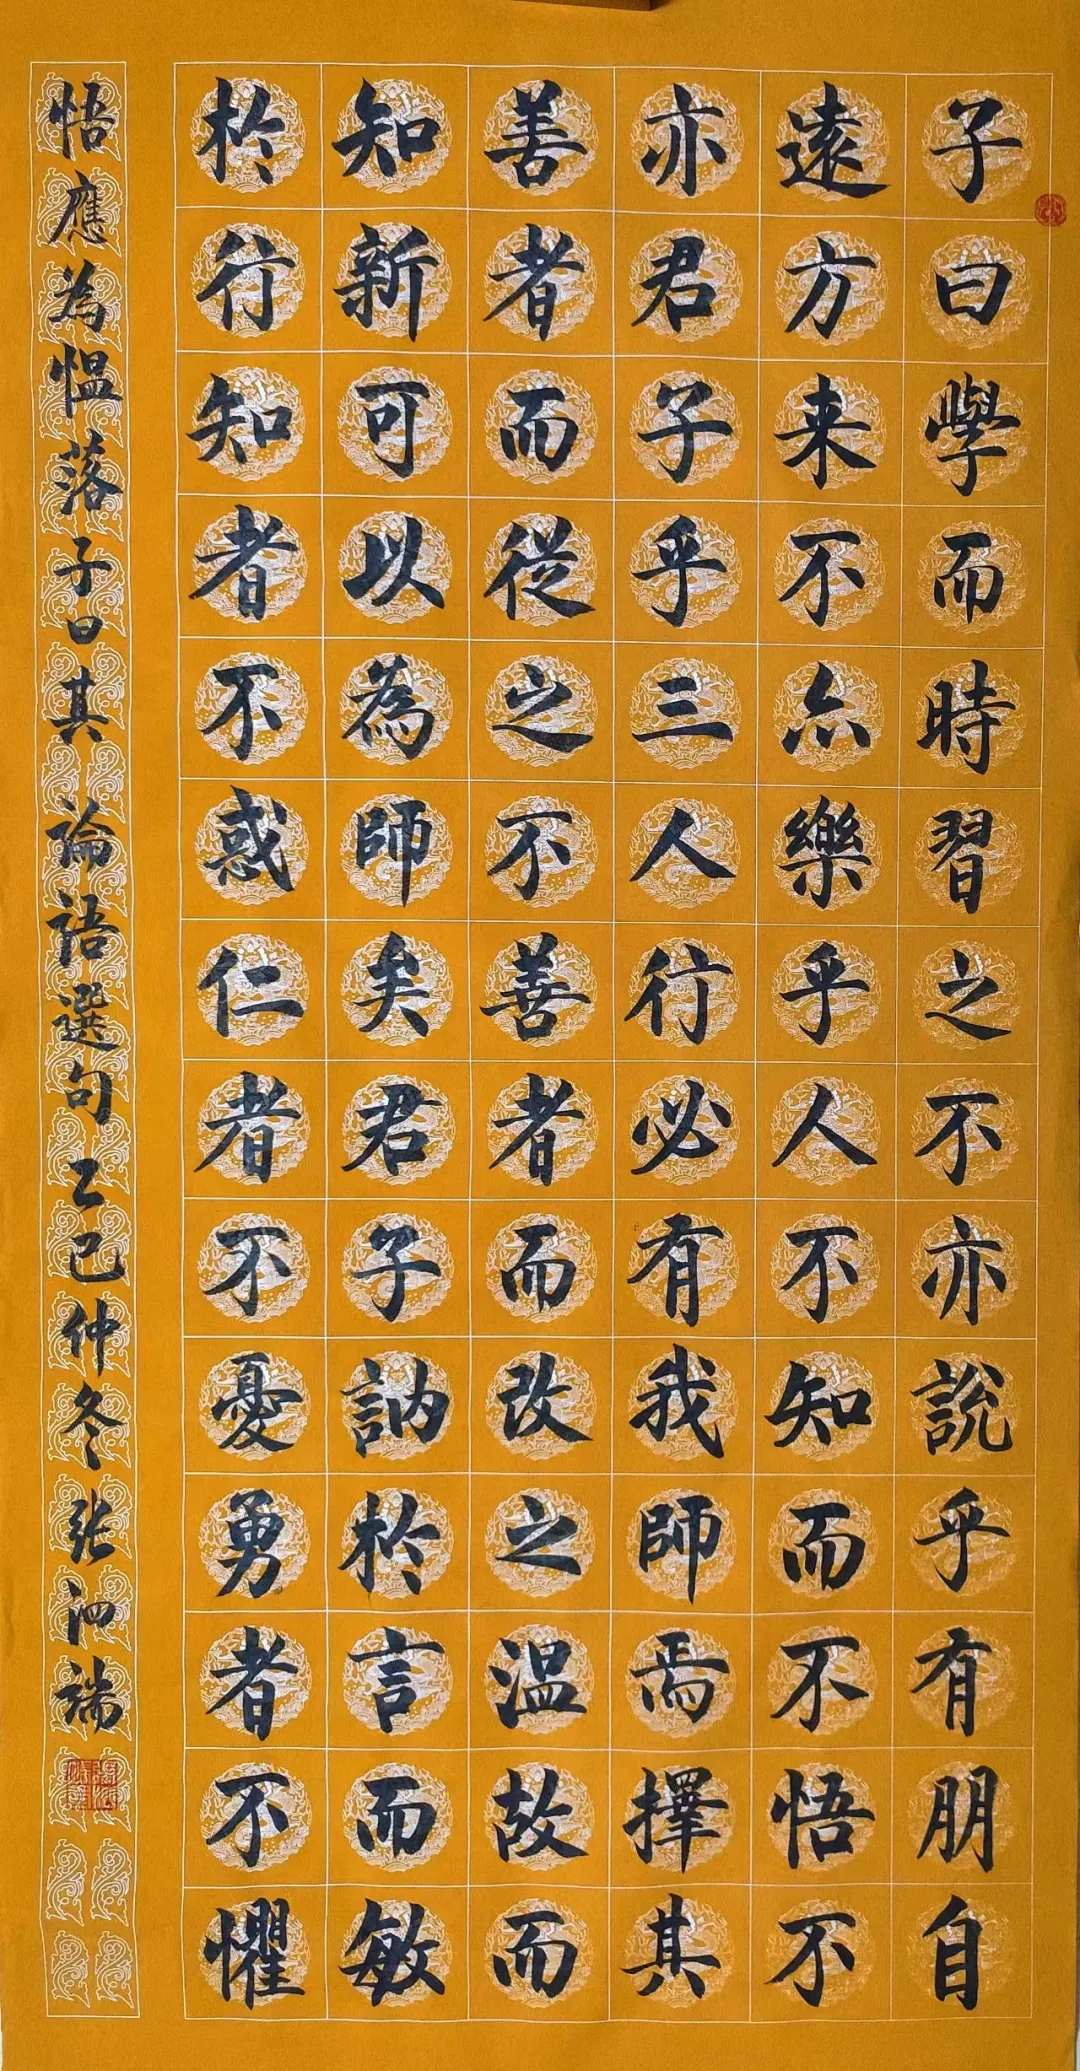 子曰學而時習之不亦說乎有朋自
遠方来不亦樂乎人不知而不悟不
亦君子乎三人行必有我師焉擇其
善者而從之不善者而改之温故而
知新可以為師矣君子訥於言而敏
於行知者不惑仁者不憂勇者不懼
悟應為愠落子曰其論語選句乙巳仲冬张泗端